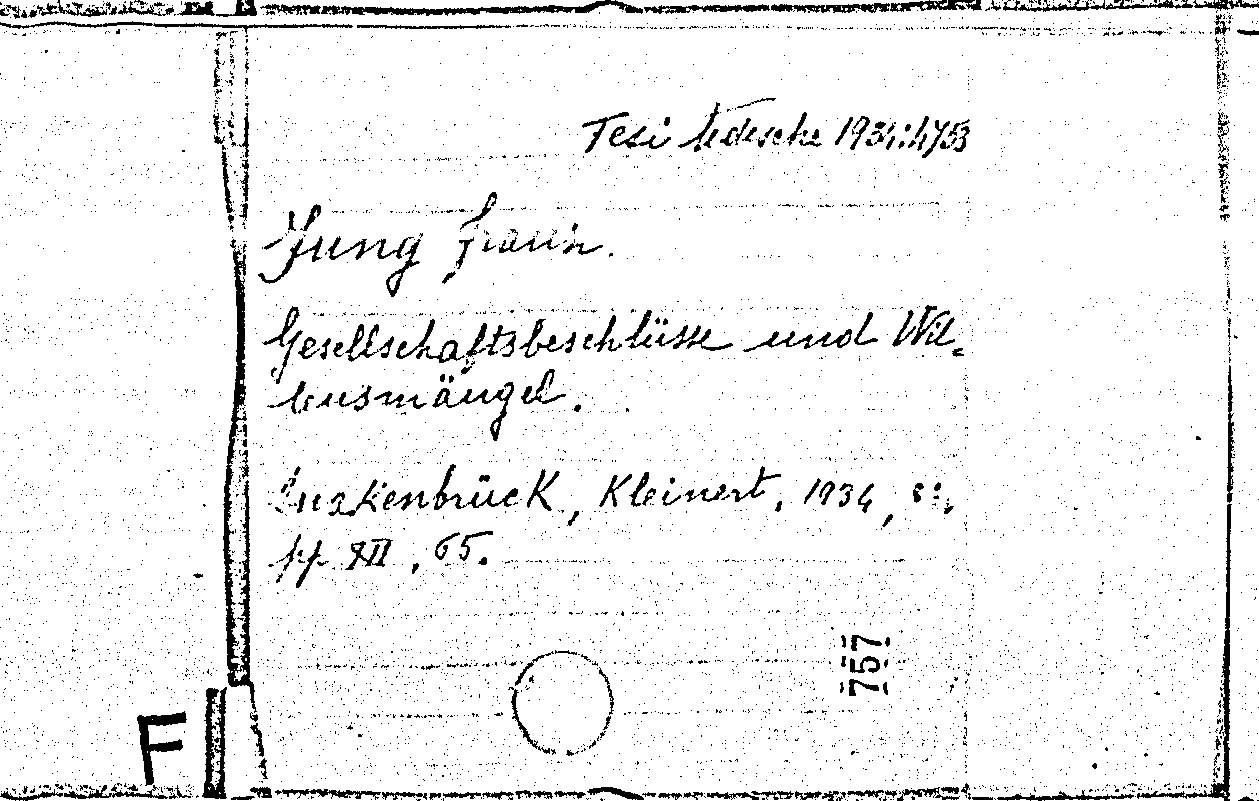 Tesi tedesche 1934:4753
Jung Franz.
Gesellschaftsbeschlüsse und Wil-
lensmängel.
Quakenbrück, Kleinert, 1934, 8°,
pp XII, 65.
757
F